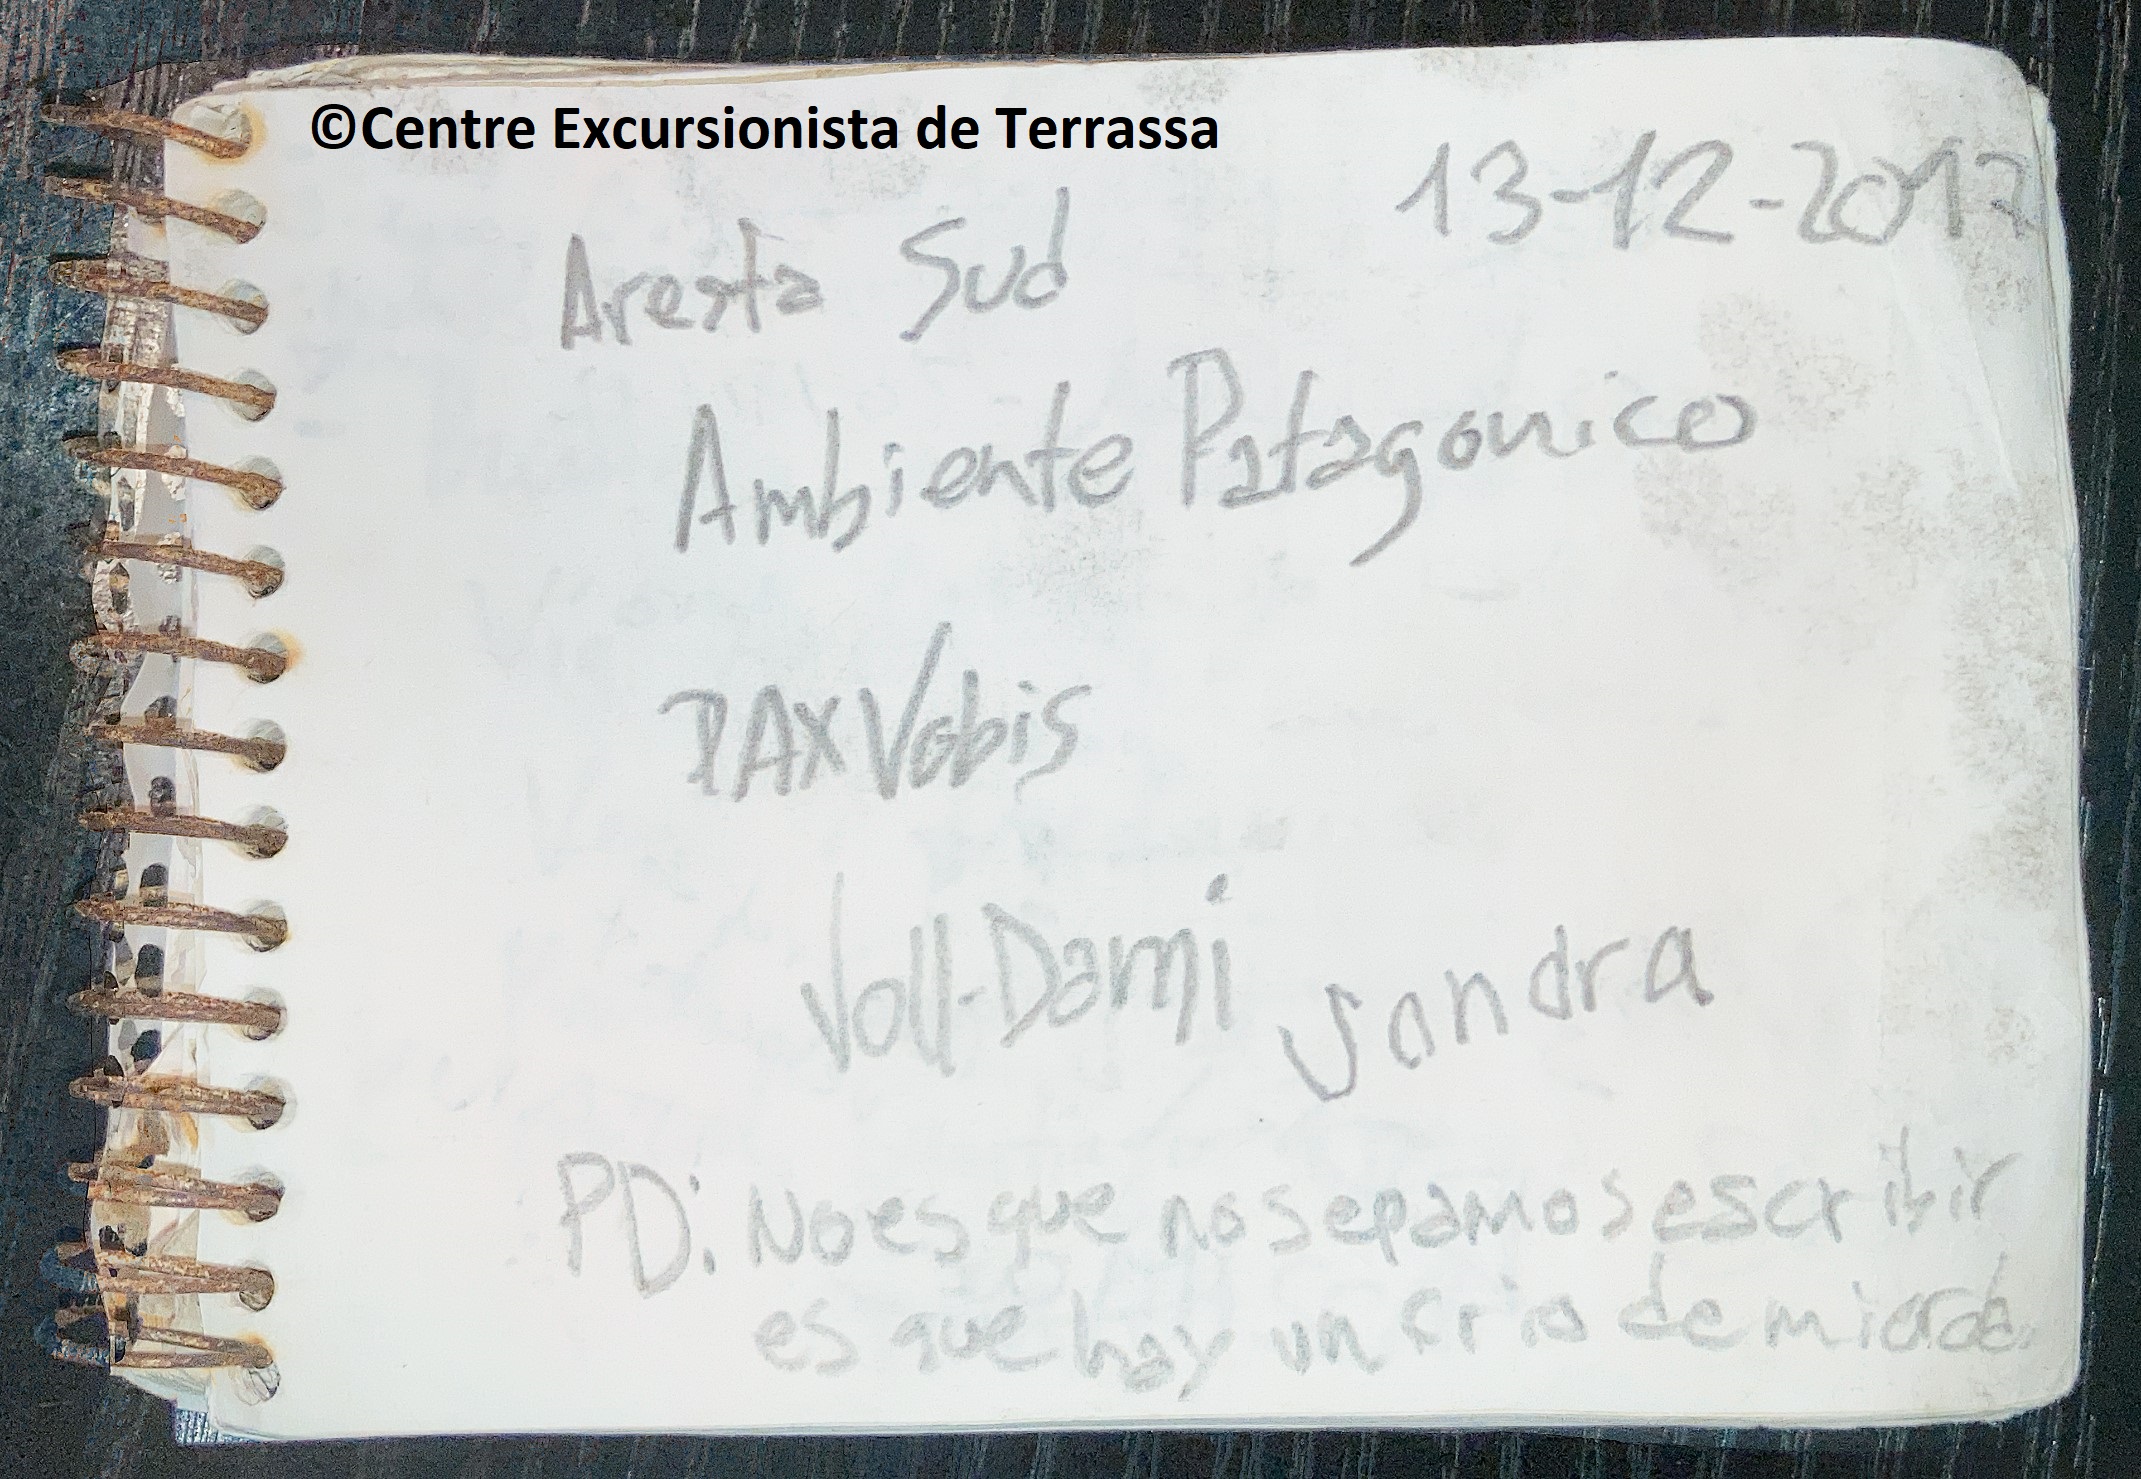 ©Centre Excursionista de Terrassa
13-12-2017
Aresta Sud
Ambiente Patagonico
PAX Vobis
Voll-Dami Sandra
PD: No es que no sepamos escribir
es que hay un frio de mierda